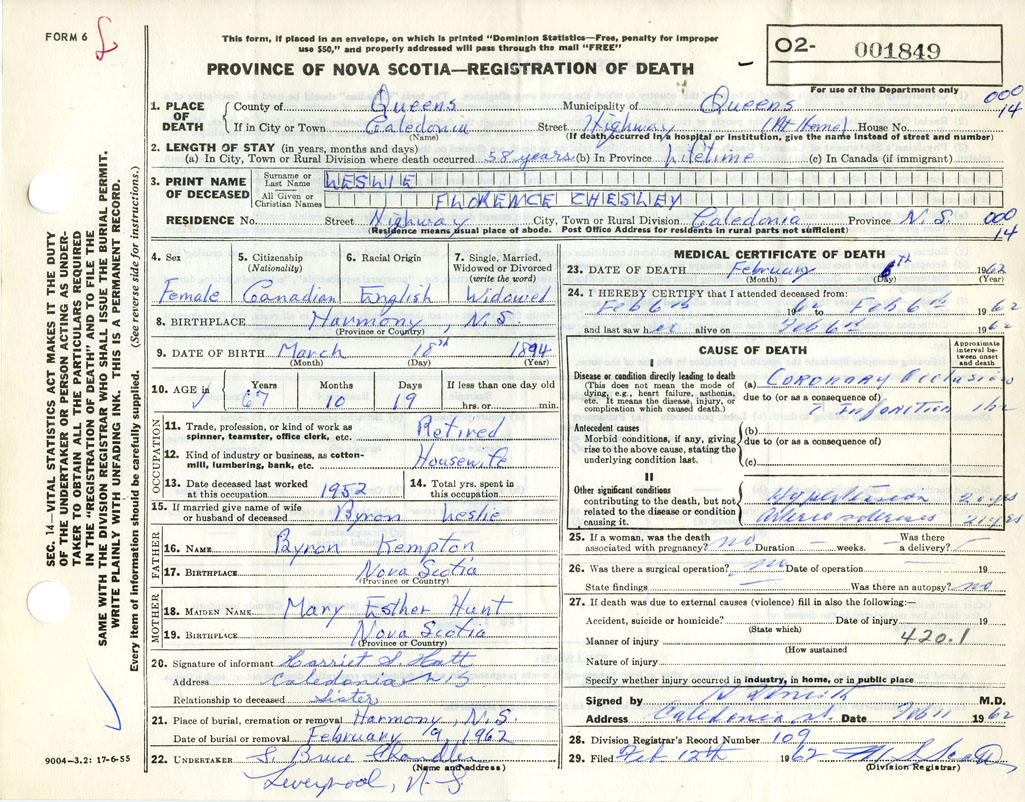 FORM 6
This form, if placed in an envelope, on which is printed "Dominion Statistics—Free, penalty for improper
use $50," and properly addressed will pass through the mail "FREE"
PROVINCE OF NOVA SCOTIA—REGISTRATION OF DEATH
02- 001849
For use of the Department only
000
14
1. PLACE OF DEATH
County of Queens Municipality of Queens
If in City or Town Caledonia Street Highway (At Home) House No.
(Name) (If death occurred in a hospital or institution, give the name instead of street and number)
2. LENGTH OF STAY (in years, months and days)
(a) In City, Town or Rural Division where death occurred 58 years (b) In Province Lifetime (c) In Canada (if immigrant)
3. PRINT NAME OF DECEASED
Surname or Last Name LESLIE
All Given or Christian Names FLORENCE CHESLEY
RESIDENCE No. Street Highway City, Town or Rural Division Caledonia Province N.S.
(Residence means usual place of abode. Post Office Address for residents in rural parts not sufficient)
000
14
4. Sex Female
5. Citizenship (Nationality) Canadian
6. Racial Origin English
7. Single, Married, Widowed or Divorced (write the word) Widowed
8. BIRTHPLACE Harmony, N.S.
(Province or Country)
9. DATE OF BIRTH March 18th 1894
(Month) (Day) (Year)
10. AGE in Years 67 Months 10 Days 19 If less than one day old hrs. or min.
OCCUPATION
11. Trade, profession, or kind of work as spinner, teamster, office clerk, etc. Retired
12. Kind of industry or business, as cotton-mill, lumbering, bank, etc. Housewife
13. Date deceased last worked at this occupation 1952
14. Total yrs. spent in this occupation
15. If married give name of wife or husband of deceased Byron Leslie
FATHER
16. NAME Byron Kempton
17. BIRTHPLACE Nova Scotia
(Province or Country)
MOTHER
18. MAIDEN NAME Mary Esther Hunt
19. BIRTHPLACE Nova Scotia
(Province or Country)
20. Signature of informant Harriet S. Hatt
Address Caledonia N S
Relationship to deceased Sister
21. Place of burial, cremation or removal Harmony, N.S.
Date of burial or removal February 9, 1962
22. UNDERTAKER S. Bruce Chandler
(Name and address)
Liverpool, N-S
9004—3.2: 17-6-55
MEDICAL CERTIFICATE OF DEATH
23. DATE OF DEATH February 6th 1962
(Month) (Day) (Year)
24. I HEREBY CERTIFY that I attended deceased from:
Feb 6th 1962 to Feb 6th 1962
and last saw her alive on Feb 6th 1962
CAUSE OF DEATH
Approximate interval between onset and death
I
Disease or condition directly leading to death (This does not mean the mode of dying, e.g., heart failure, asthenia, etc. It means the disease, injury, or complication which caused death.)
(a) Coronary Occlusion
due to (or as a consequence of)
Infarction 1 hr
Antecedent causes
Morbid conditions, if any, giving rise to the above cause, stating the underlying condition last.
(b)
due to (or as a consequence of)
(c)
II
Other significant conditions contributing to the death, but not related to the disease or condition causing it.
Hypertension
25. If a woman, was the death associated with pregnancy? no Duration — weeks. Was there a delivery? —
26. Was there a surgical operation? no Date of operation — 19
State findings Was there an autopsy? no
27. If death was due to external causes (violence) fill in also the following:—
Accident, suicide or homicide? Date of injury 19
(State which)
Manner of injury 420.1
(How sustained
Nature of injury
Specify whether injury occurred in industry, in home, or in public place
Signed by M.D.
Address Caledonia Date Feb 11 1962
28. Division Registrar's Record Number 109
29. Filed Feb 12th 1962
(Division Registrar)
SEC. 14—VITAL STATISTICS ACT MAKES IT THE DUTY
OF THE UNDERTAKER OR PERSON ACTING AS UNDER-
TAKER TO OBTAIN ALL THE PARTICULARS REQUIRED
IN THE "REGISTRATION OF DEATH" AND TO FILE THE
SAME WITH THE DIVISION REGISTRAR WHO SHALL ISSUE THE BURIAL PERMIT.
WRITE PLAINLY WITH UNFADING INK. THIS IS A PERMANENT RECORD.
Every item of information should be carefully supplied. (See reverse side for instructions.)